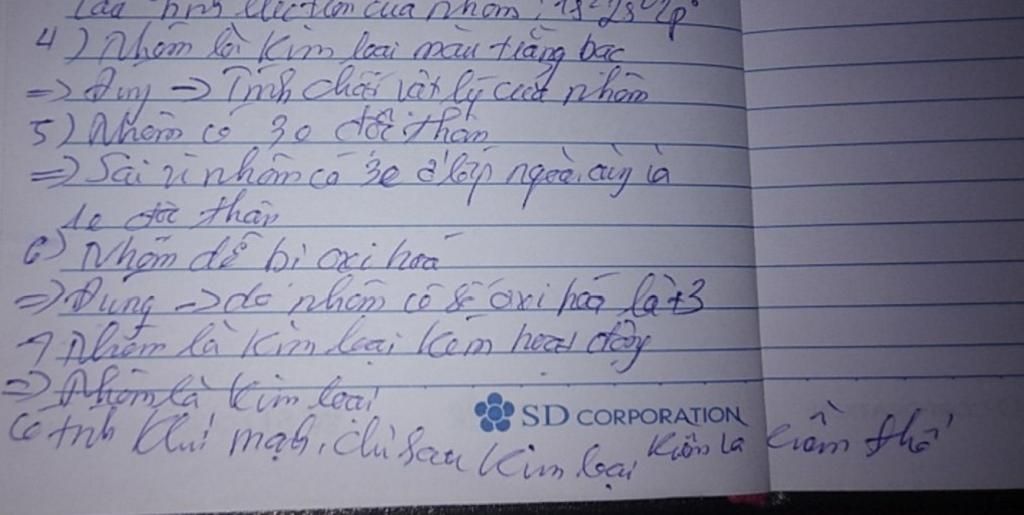 Cấu hình electron của nhôm: 1s² 2s² 2p⁶
4) Nhôm là kim loại màu trắng bạc
=> Đúng -> Tính chất vật lý của nhôm
5) Nhôm có 3e độc thân
=> Sai vì nhôm có 3e ở lớp ngoài cùng và
1e độc thân
6) Nhôm dễ bị oxi hoá
=> Đúng -> do nhôm có số oxi hoá là +3
7 Nhôm là kim loại kém hoạt động
=> Nhôm là kim loại
SD CORPORATION
có tính khử mạnh, chỉ sau kim loại kiềm và kiềm thổ